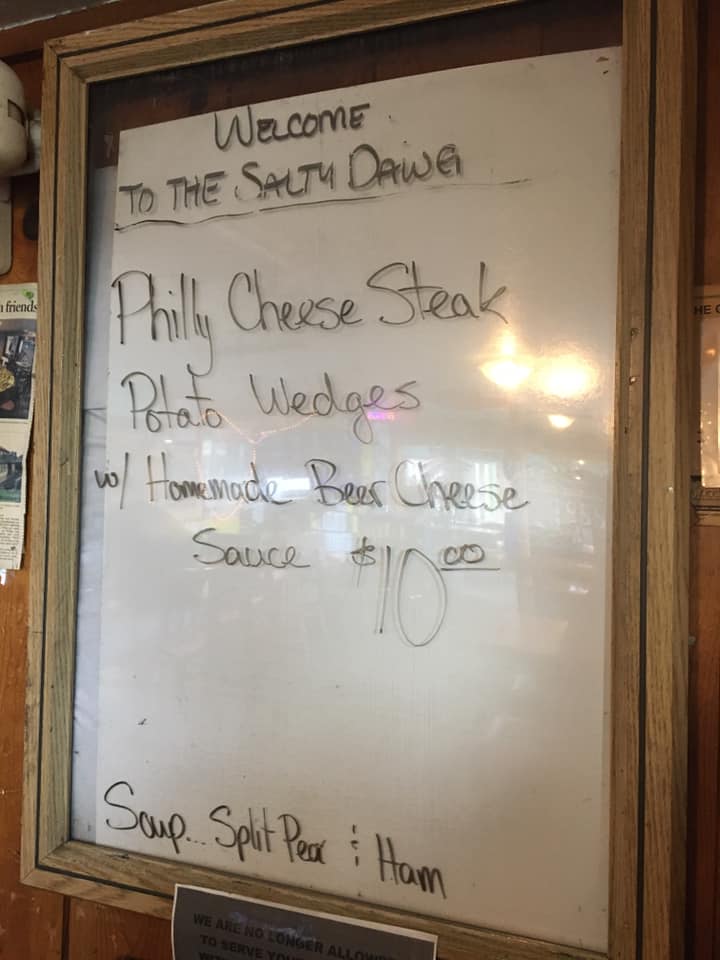 WELCOME
TO THE SALTY DAWG
Philly Cheese Steak
Potato Wedges
w/ Homemade Beer Cheese
Sauce $10 00
Soup... Split Pea & Ham
WE ARE NO LONGER
TO SERVE
friends
HE